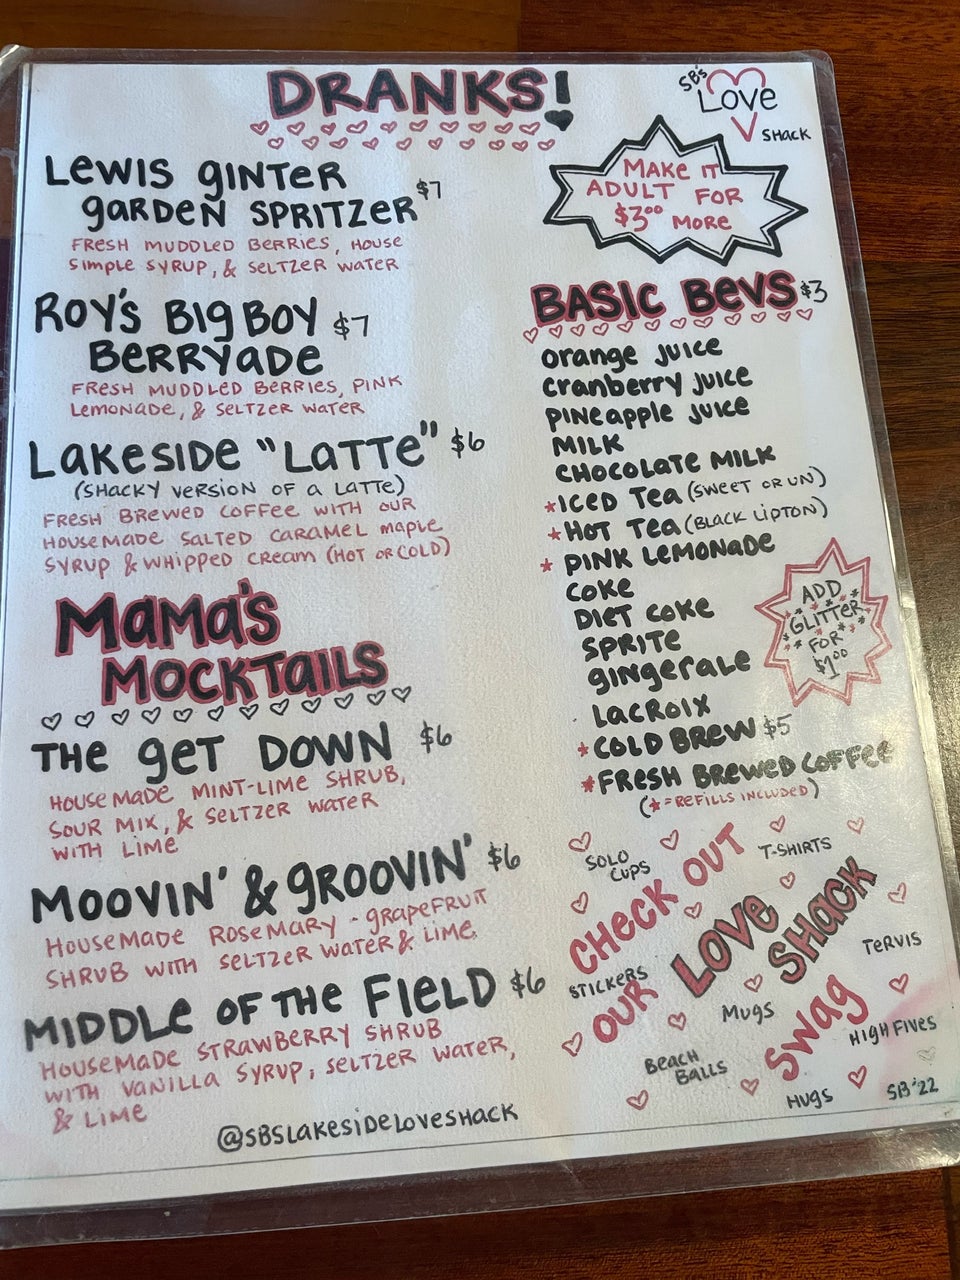 DRANKS!
SB's
LOVE
SHACK
LEWIS GINTER
GARDEN SPRITZER $7
FRESH MUDDLED BERRIES, HOUSE
SIMPLE SYRUP, & SELTZER WATER
ROY'S BIG BOY $7
BERRYADE
FRESH MUDDLED BERRIES, PINK
LEMONADE, & SELTZER WATER
LAKESIDE "LATTE" $6
(SHACKY VERSION OF A LATTE)
FRESH BREWED COFFEE WITH OUR
HOUSEMADE SALTED CARAMEL MAPLE
SYRUP & WHIPPED CREAM (HOT OR COLD)
MAMA'S
MOCKTAILS
THE GET DOWN $6
HOUSEMADE MINT-LIME SHRUB,
SOUR MIX, & SELTZER WATER
WITH LIME
MOOVIN' & GROOVIN' $6
HOUSEMADE ROSEMARY-GRAPEFRUIT
SHRUB WITH SELTZER WATER & LIME
MIDDLE OF THE FIELD $6
HOUSEMADE STRAWBERRY SHRUB
WITH VANILLA SYRUP, SELTZER WATER,
& LIME
@SBSLAKESIDELOVESHACK
MAKE IT
ADULT FOR
$3.00 MORE
BASIC BEVS $3
ORANGE JUICE
CRANBERRY JUICE
PINEAPPLE JUICE
MILK
CHOCOLATE MILK
*ICED TEA (SWEET OR UN)
*HOT TEA (BLACK LIPTON)
*PINK LEMONADE
COKE
DIET COKE
SPRITE
GINGERALE
LACROIX
*COLD BREW $5
*FRESH BREWED COFFEE
(*=REFILLS INCLUDED)
ADD
GLITTER
FOR
$1.00
CHECK OUT
OUR LOVE SHACK
SWAG
SOLO
CUPS
T-SHIRTS
STICKERS
TERVIS
MUGS
HIGH FIVES
BEACH
BALLS
HUGS
SB'22